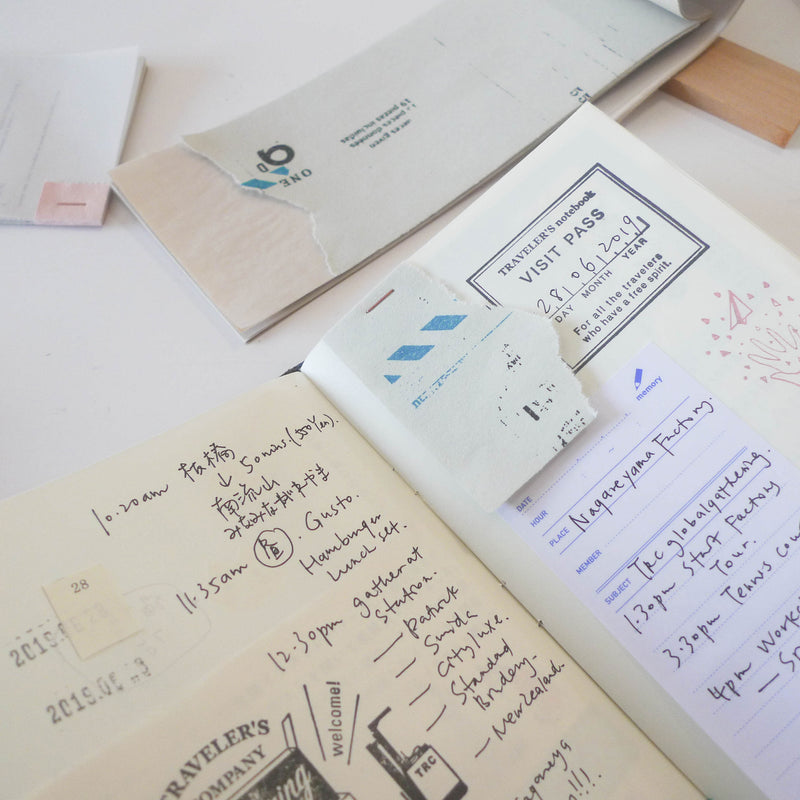 ONE
D
9
19 pieces incluses
pièces données
ieces given
TRAVELER'S notebook
VISIT PASS
28 06 2019
DAY MONTH YEAR
For all the travelers
who have a free spirit.
memory
DATE
HOUR
PLACE Nagareyama Factory.
MEMBER
SUBJECT TRC global gathering.
1.30pm Start Factory
Tour.
3.30pm Tennis
4pm
10.20am 板橋
↓ 50 mins. (550 Yen).
南流山
11.35am Gusto.
Hamburger
Lunch set.
12.30pm gather at
Station.
— Patrick
— Sumida
— cityluxe.
— Standard
Bindery.
— New Zealand.
28
2019.06
2019.06
TRAVELER'S
COMPANY
welcome!
TRC